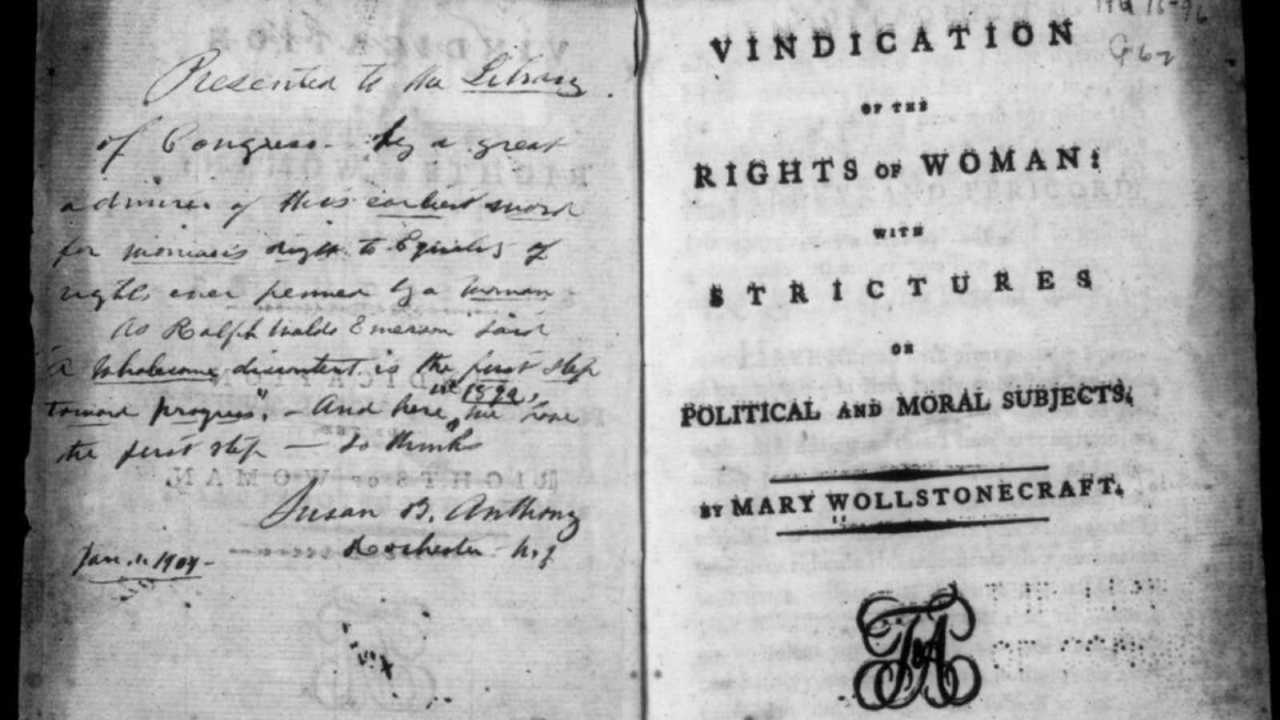 Presented to the Library
of Congress - by a great
admirer of this earliest word
for woman's right to Equality of
rights ever penned by a woman -
As Ralph Waldo Emerson said
"A wholesome discontent is the first step
toward progress". - And here, in 1892, we have
the first step - So thinks
Susan B. Anthony
Rochester - N.Y
Jan. 1. 1904 -
VINDICATION
OF THE
RIGHTS OF WOMAN:
WITH
STRICTURES
ON
POLITICAL AND MORAL SUBJECTS.
BY MARY WOLLSTONECRAFT.